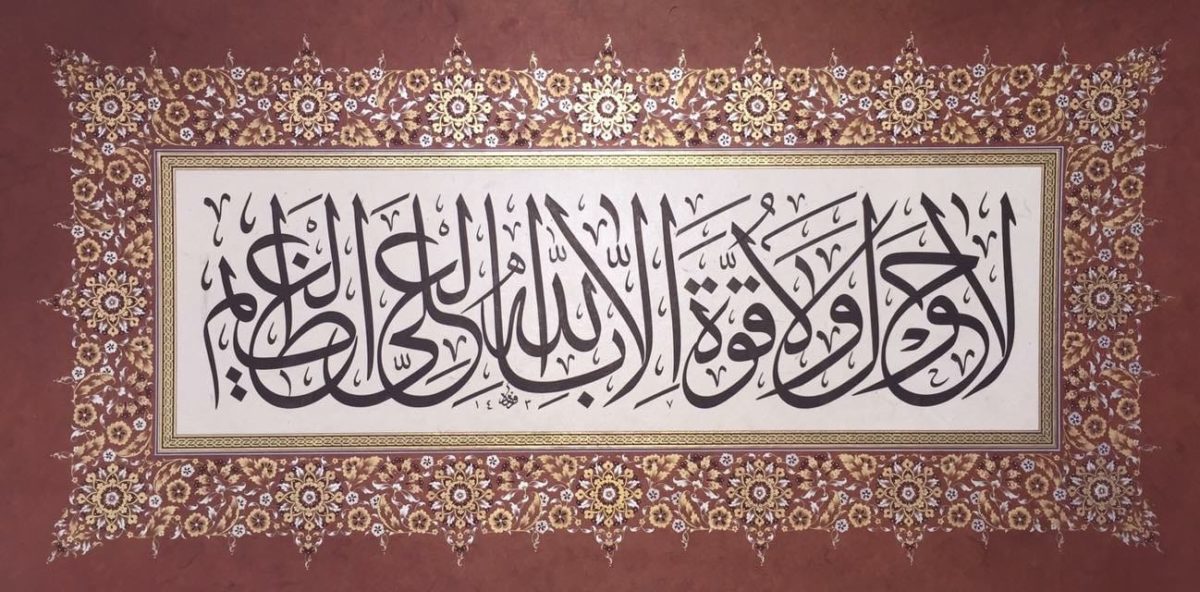 لَا حَوْلَ وَلَا قُوَّةَ اِلَّا بِاللّٰهِ الْعَلِىِّ الْعَظِيمِ
١٤٣٧